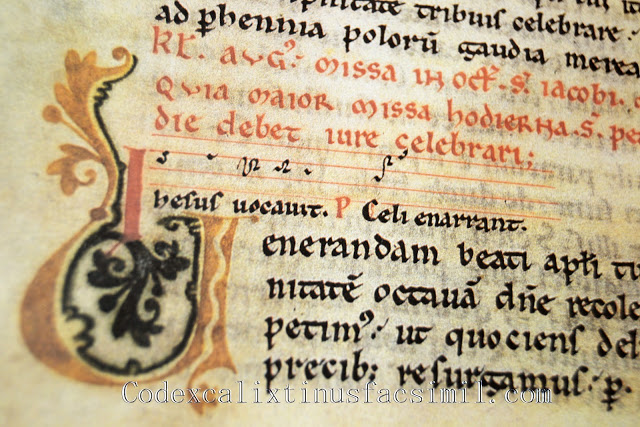 nitate tribuis celebrare.
ad phennia polorū gaudia merea
Kł. augꝰ. missa in oct̄. s̄. iacobi.
Quia maior missa hodierna. s̄. pe
die debet iure celebrari;
Ihesus uocauit. P Celi enarrant.
Uenerandam beati apłi tu
nitatē octauā dn̄e recole
petimꝰ. ut quociens del
precib; resurgamus. p.
Codexcalixtinusfacsimil.com